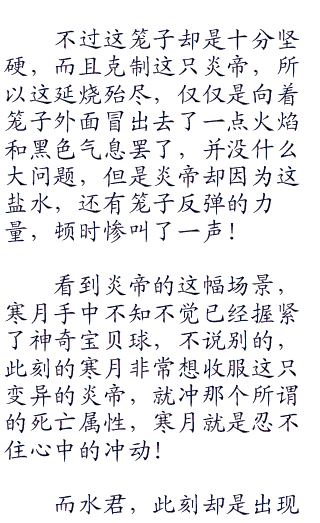 不过这笼子却是十分坚
硬，而且克制这只炎帝，所
以这延烧殆尽，仅仅是向着
笼子外面冒出去了一点火焰
和黑色气息罢了，并没什么
大问题，但是炎帝却因为这
盐水，还有笼子反弹的力
量，顿时惨叫了一声！
看到炎帝的这幅场景，
寒月手中不知不觉已经握紧
了神奇宝贝球，不说别的，
此刻的寒月非常想收服这只
变异的炎帝，就冲那个所谓
的死亡属性，寒月就是忍不
住心中的冲动！
而水君，此刻却是出现